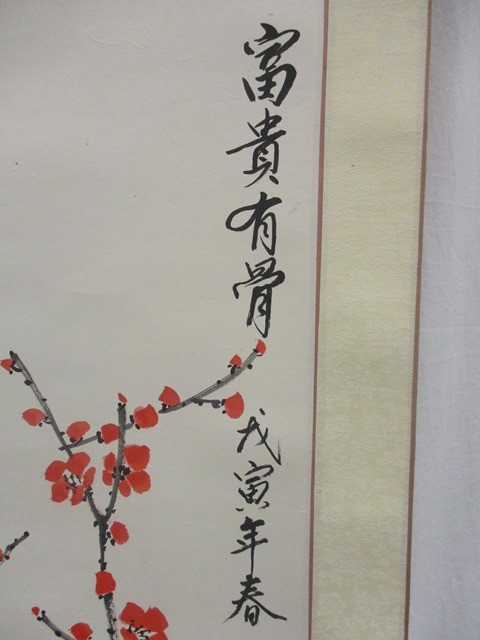 富貴有骨
戊寅年春